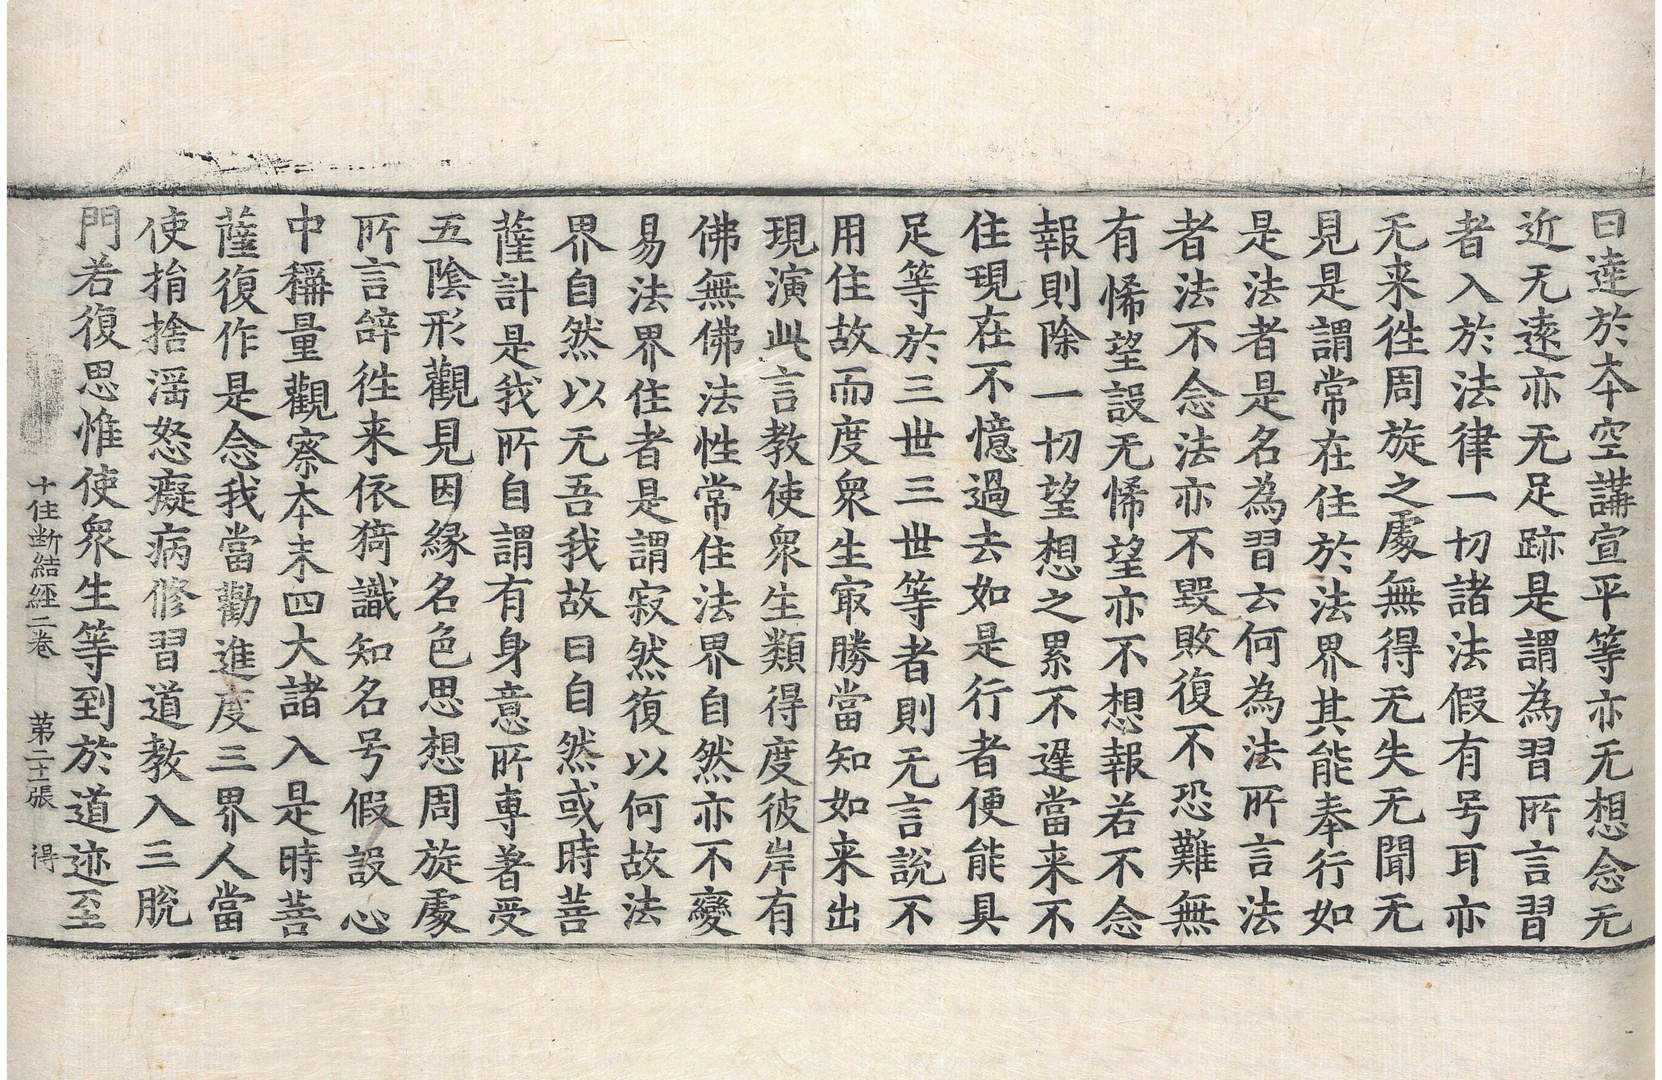 曰達於本空講宣平等亦无想念无
近无遠亦无足跡是謂為習所言習
者入於法律一切諸法假有号耳亦
无来徃周旋之處無得无失无聞无
見是謂常在住於法界其能奉行如
是法者是名為習云何為法所言法
者法不念法亦不毀敗復不恐難無
有悕望設无悕望亦不想報若不念
報則除一切望想之累不不遲當来不
住現在不憶過去如是行者便能具
足等於三世三世等者則无言說不
用住故而度衆生冣勝當知如来出
現演此言教使衆生類得度彼岸有
佛無佛法性常住法界自然亦不變
易法界住者是謂寂然復以何故法
界自然以无吾我故曰自然或時菩
薩計是我所自謂有身意所専著受
五陰形觀見因縁名色思想周旋處
所言辝徃来依猗識知名号假設心
中稱量觀察本末四大諸入是時菩
薩復作是念我當勸進度三界人當
使捐捨婬怒癡病修習道教入三脫
門若復思惟使衆生等到於道迹至
十住斷結經二卷 第二十張 得